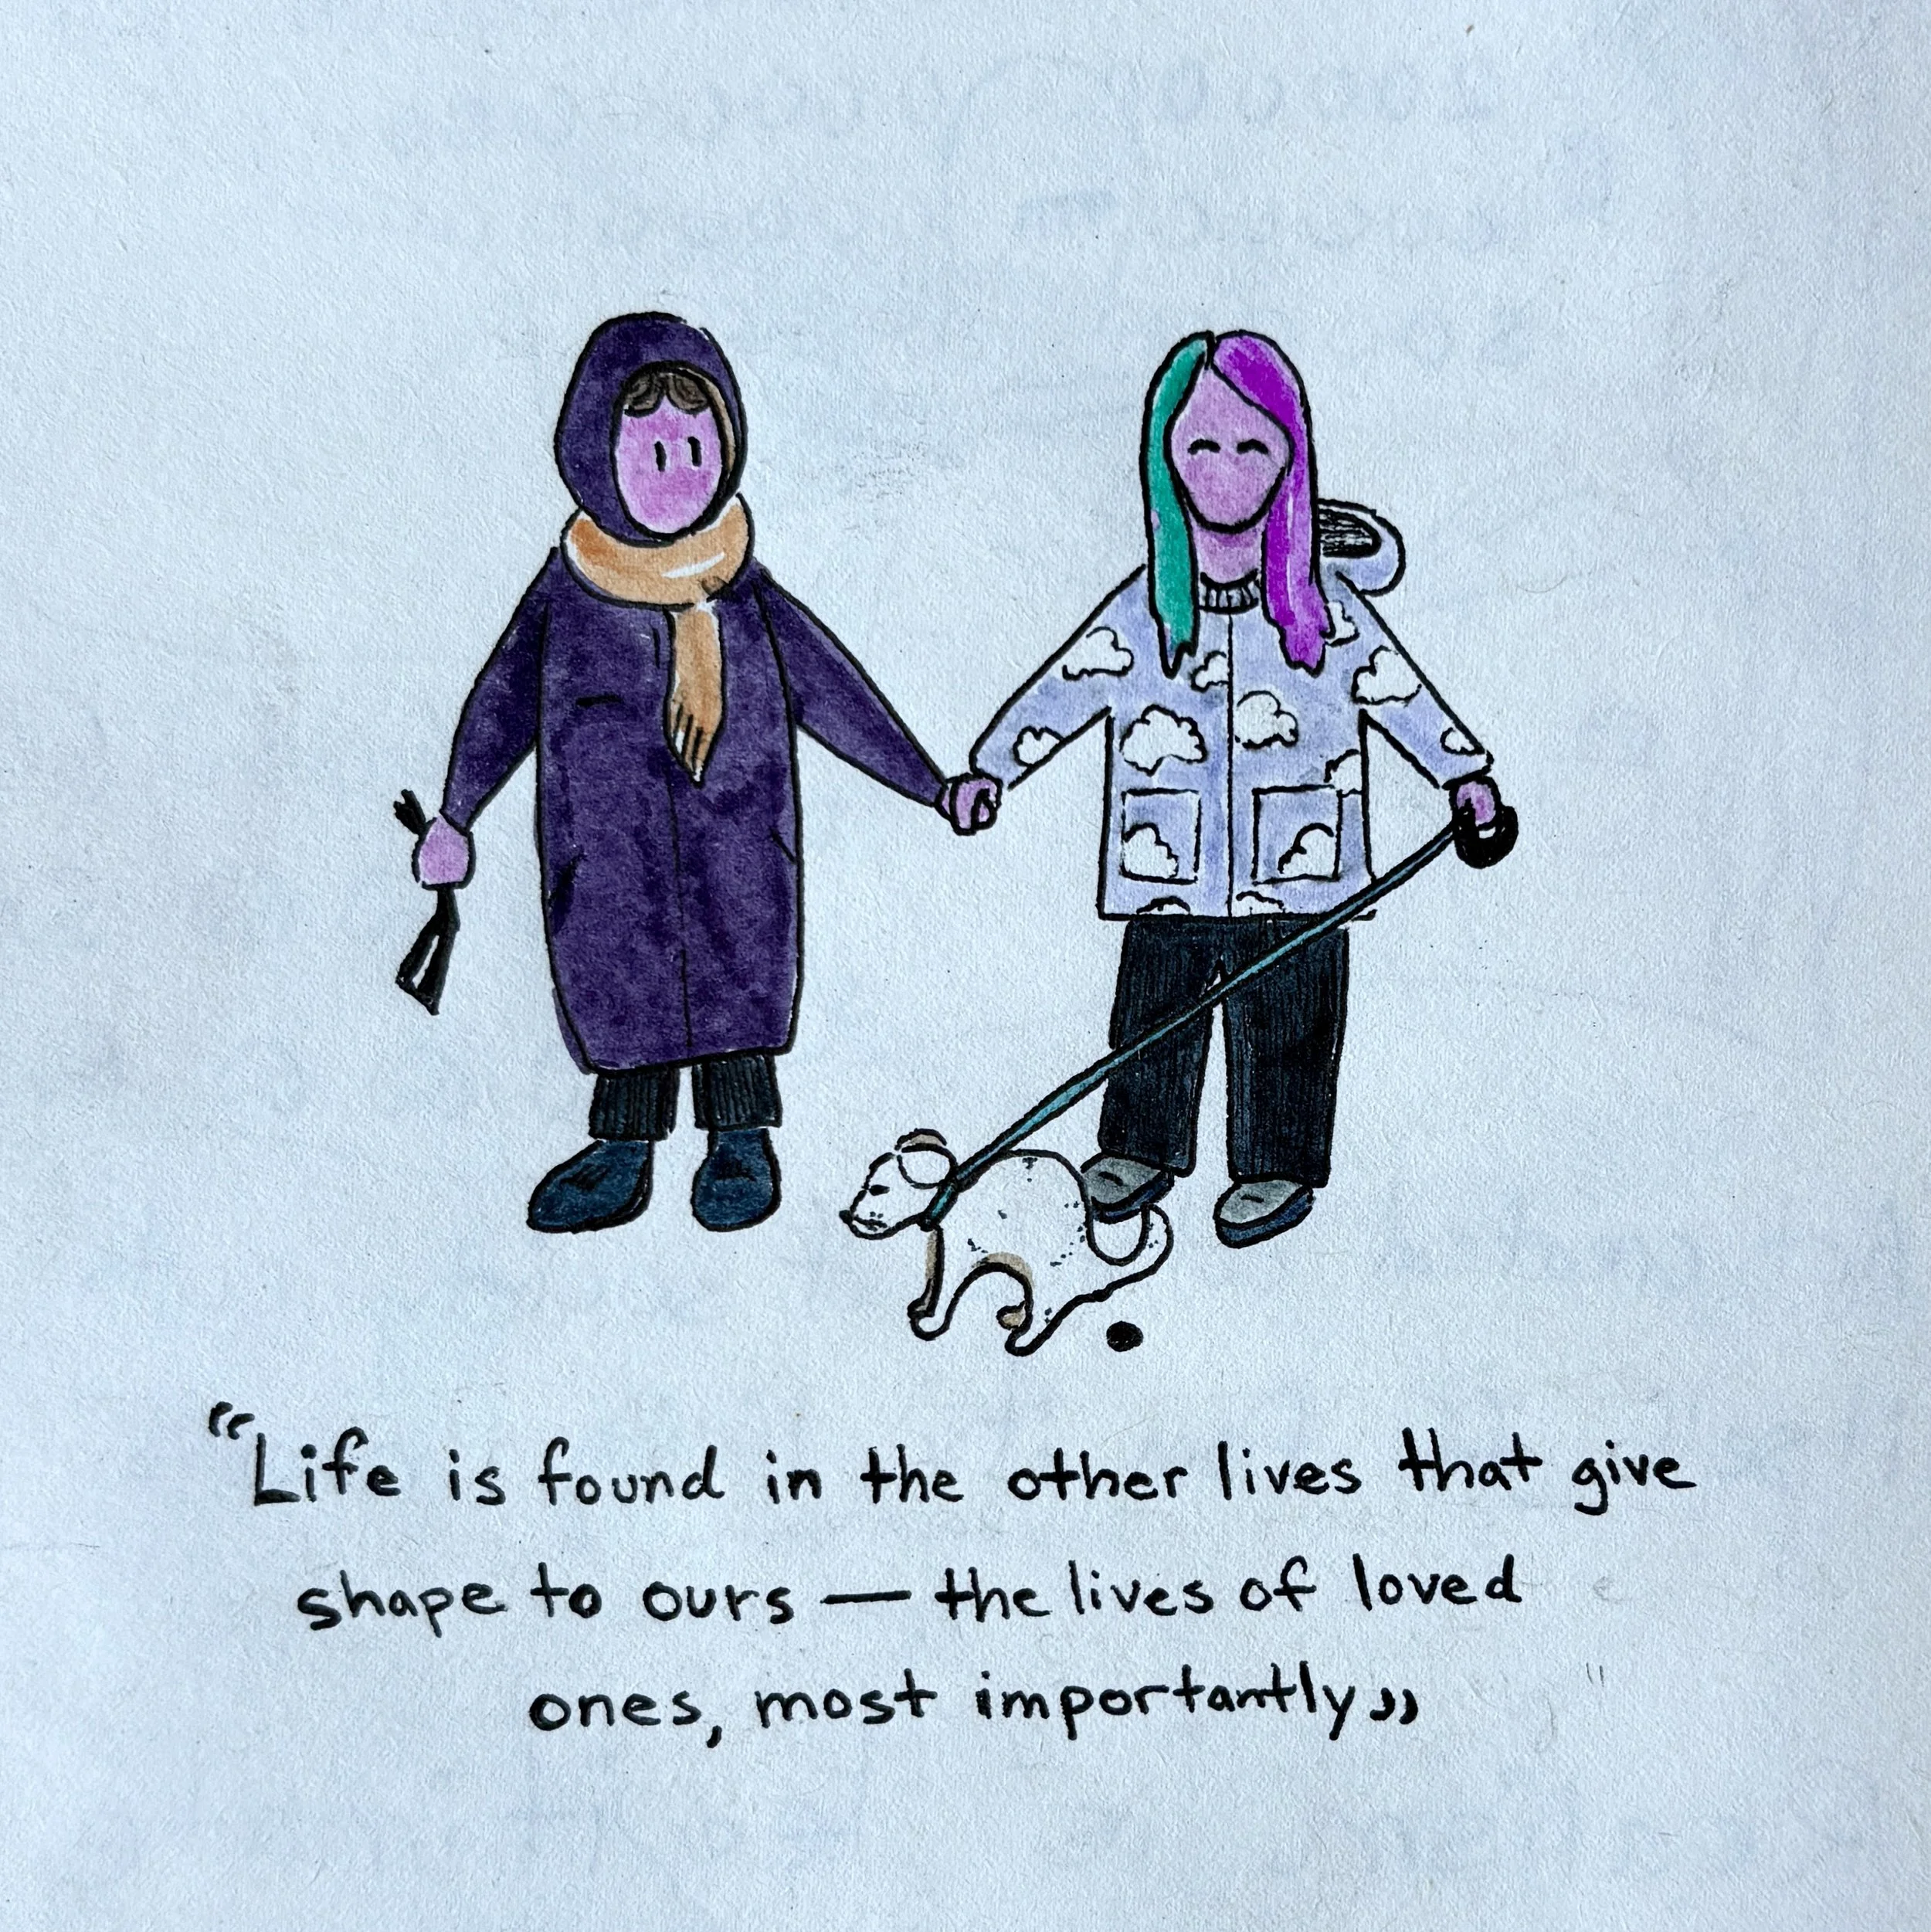 “Life is found in the other lives that give
shape to ours — the lives of loved
ones, most importantly”